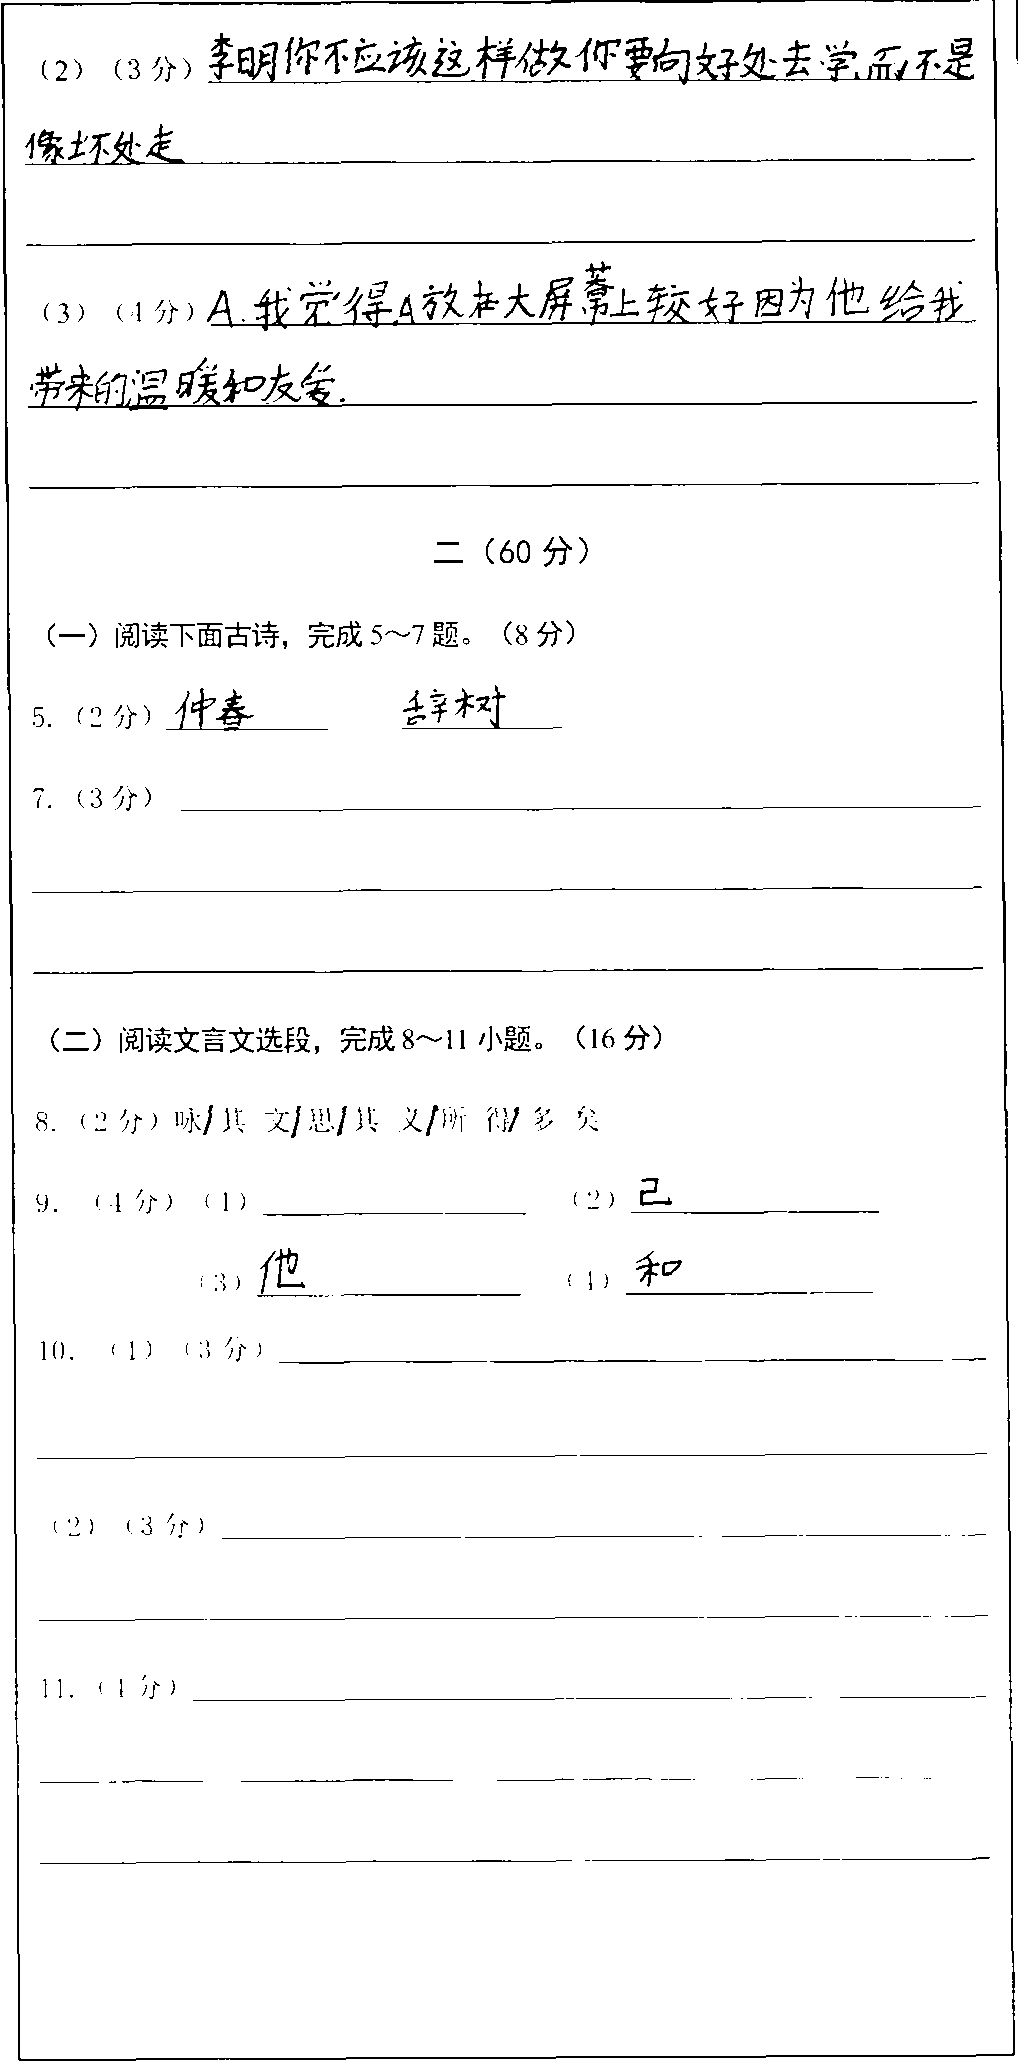 （2）（3分）李明你不应该这样做你要向好处去学,而不是
像坏处走
（3）（4分）A.我觉得A放在大屏幕上较好因为他给我
带来的温暖和友爱.
二（60 分）
（一）阅读下面古诗，完成 5～7 题。（8 分）
5.（2 分）仲春 辞树
7.（3 分）
（二）阅读文言文选段，完成 8～11 小题。（16 分）
8.（2 分）咏/其 文/思/其 义/所 得/多 矣
9.（4 分）（1） （2）己
（3）他 （4）和
10.（1）（3 分）
（2）（3 分）
11.（4 分）